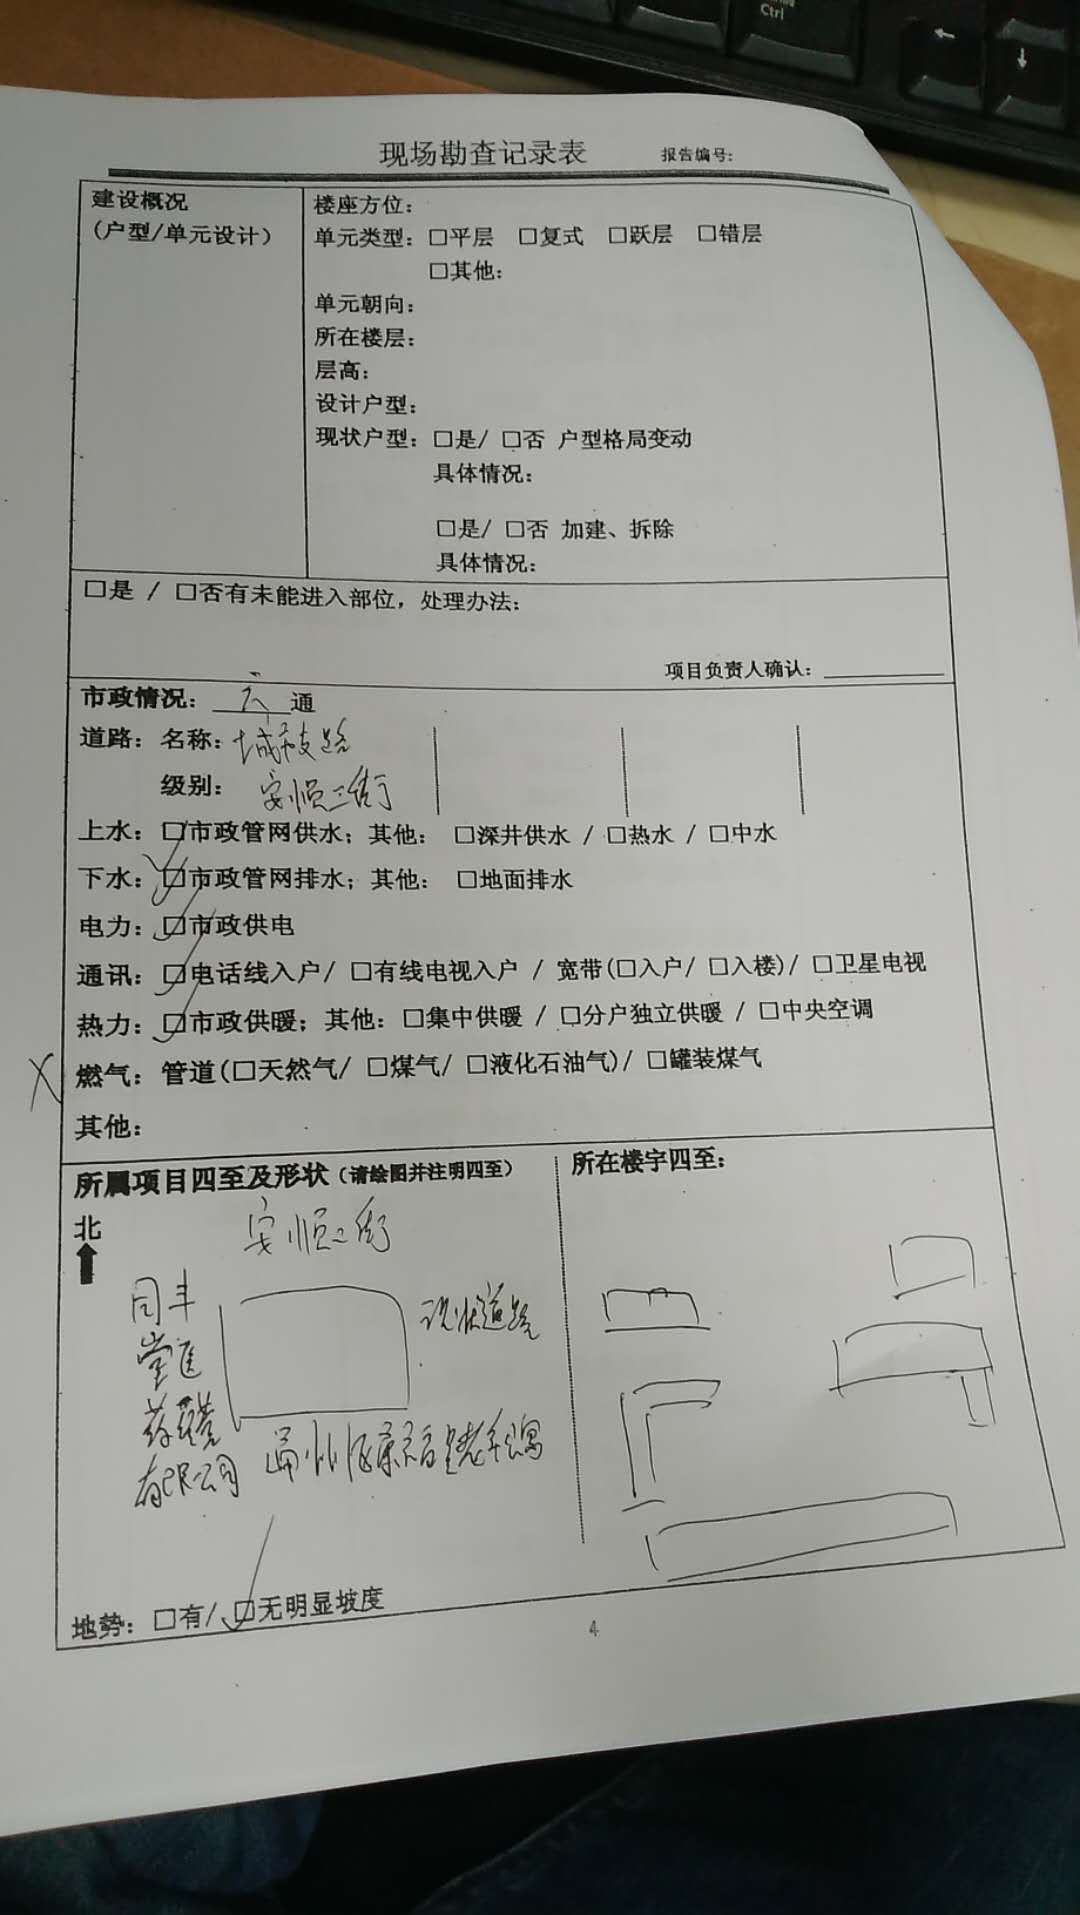 Ctrl
←
↓
现场勘查记录表 报告编号:
建设概况
(户型/单元设计)
楼座方位:
单元类型: □平层 □复式 □跃层 □错层
□其他:
单元朝向:
所在楼层:
层高:
设计户型:
现状户型: □是/ □否 户型格局变动
具体情况:
□是/ □否 加建、拆除
具体情况:
□是 / □否有未能进入部位, 处理办法:
项目负责人确认:
市政情况: 六 通
道路: 名称: 城市支路
级别: 安顺二街
上水: □市政管网供水; 其他: □深井供水 / □热水 / □中水
下水: □市政管网排水; 其他: □地面排水
电力: □市政供电
通讯: □电话线入户/ □有线电视入户 / 宽带(□入户/ □入楼)/ □卫星电视
热力: □市政供暖; 其他: □集中供暖 / □分户独立供暖 / □中央空调
X 燃气: 管道(□天然气/ □煤气/ □液化石油气)/ □罐装煤气
其他:
所属项目四至及形状(请绘图并注明四至)
北
安顺二街
同丰
堂医
有限公司
现状道路
通州 老年公寓
所在楼宇四至:
地势: □有/ □无明显坡度
4